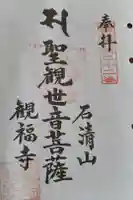 奉拝
石清山
聖観世音菩薩
観福寺